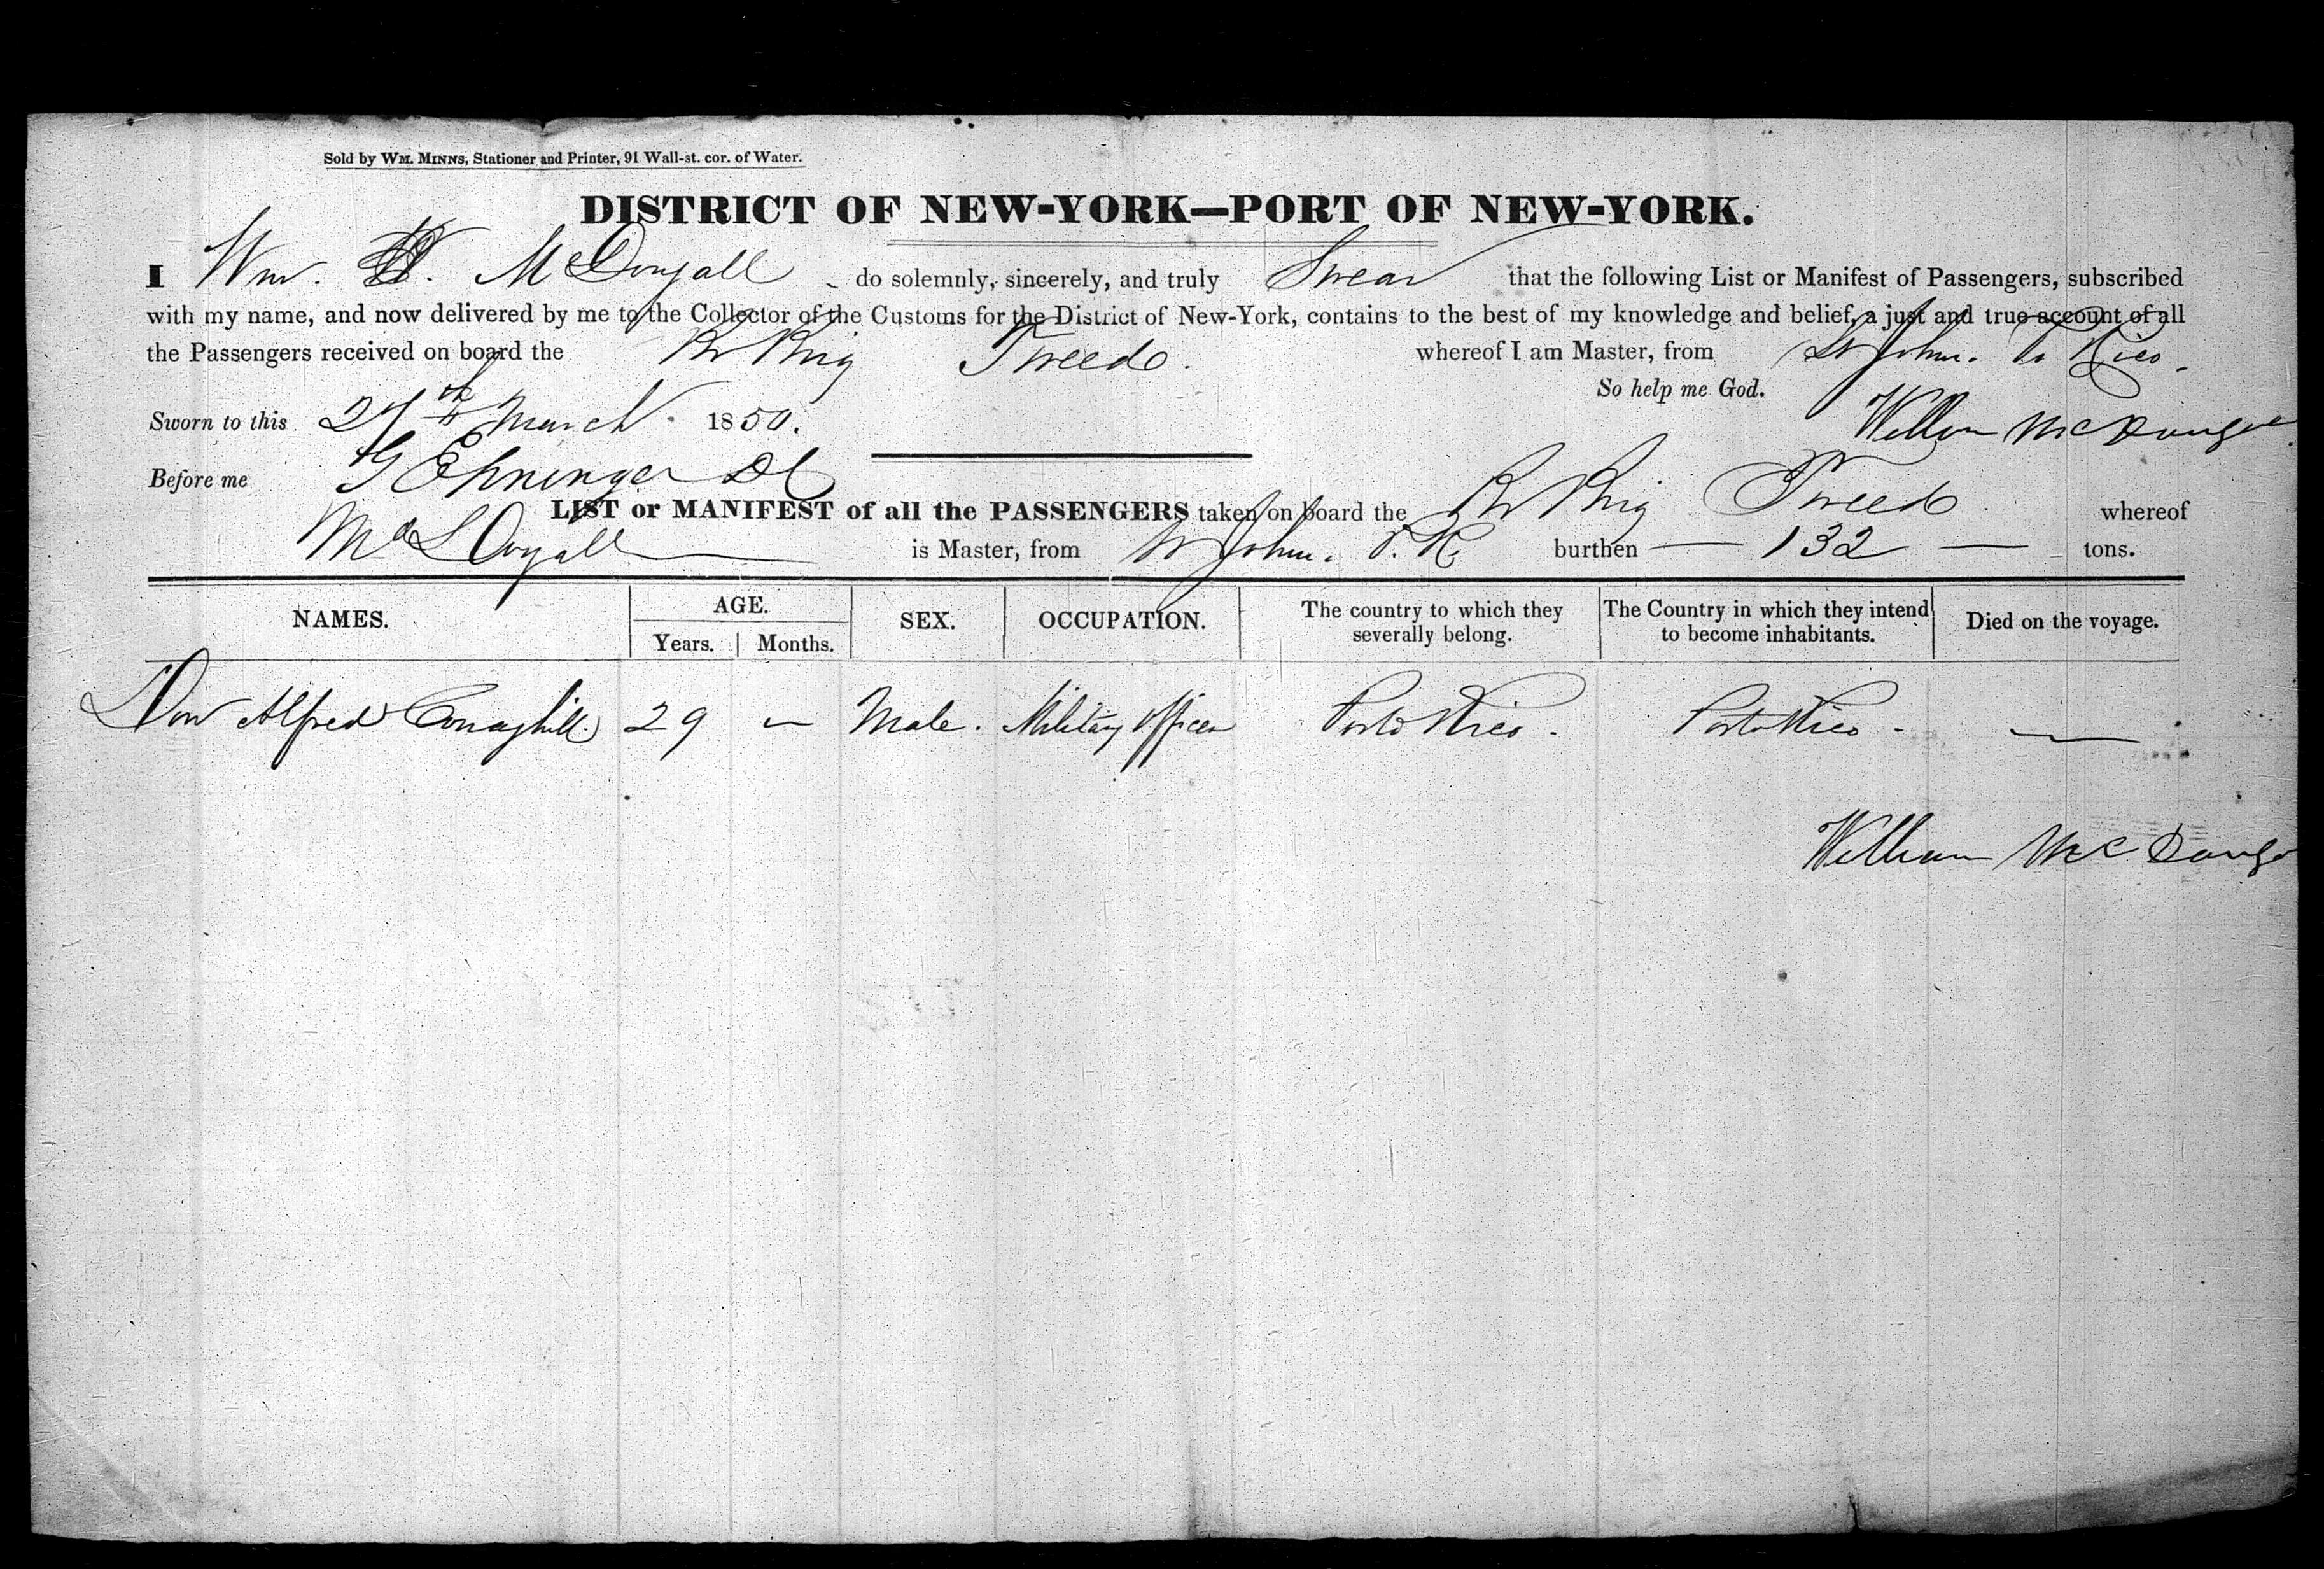 Sold by WM. MINNS, Stationer and Printer, 91 Wall-st. cor. of Water.
DISTRICT OF NEW-YORK—PORT OF NEW-YORK.
I Wm. McDougall do solemnly, sincerely, and truly Swear that the following List or Manifest of Passengers, subscribed
with my name, and now delivered by me to the Collector of the Customs for the District of New-York, contains to the best of my knowledge and belief, a just and true account of all
the Passengers received on board the Br Brig Tweed. whereof I am Master, from St Johns. Po Rico.
So help me God.
Sworn to this 27th March 1850. William McDougal
Before me G Ehninger DC
LIST or MANIFEST of all the PASSENGERS taken on board the Br Brig Tweed whereof
is Master, from St Johns. P. R. burthen — 132 — tons.
NAMES. AGE. SEX. OCCUPATION. The country to which they severally belong. The Country in which they intend to become inhabitants. Died on the voyage.
Years. Months.
Don Alfred 29 — Male. Military Officer Porto Rico. Porto Rico. —
William McDoug